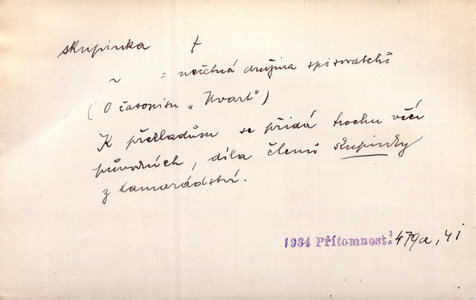 skupinka †
~ = neúčtná družina spisovatelů
(O časopisu „Kvart")
K překladům se přidá trochu věcí
původních, díla členů skupinky
z kamarádství.
1934 Přítomnost 479a, 41